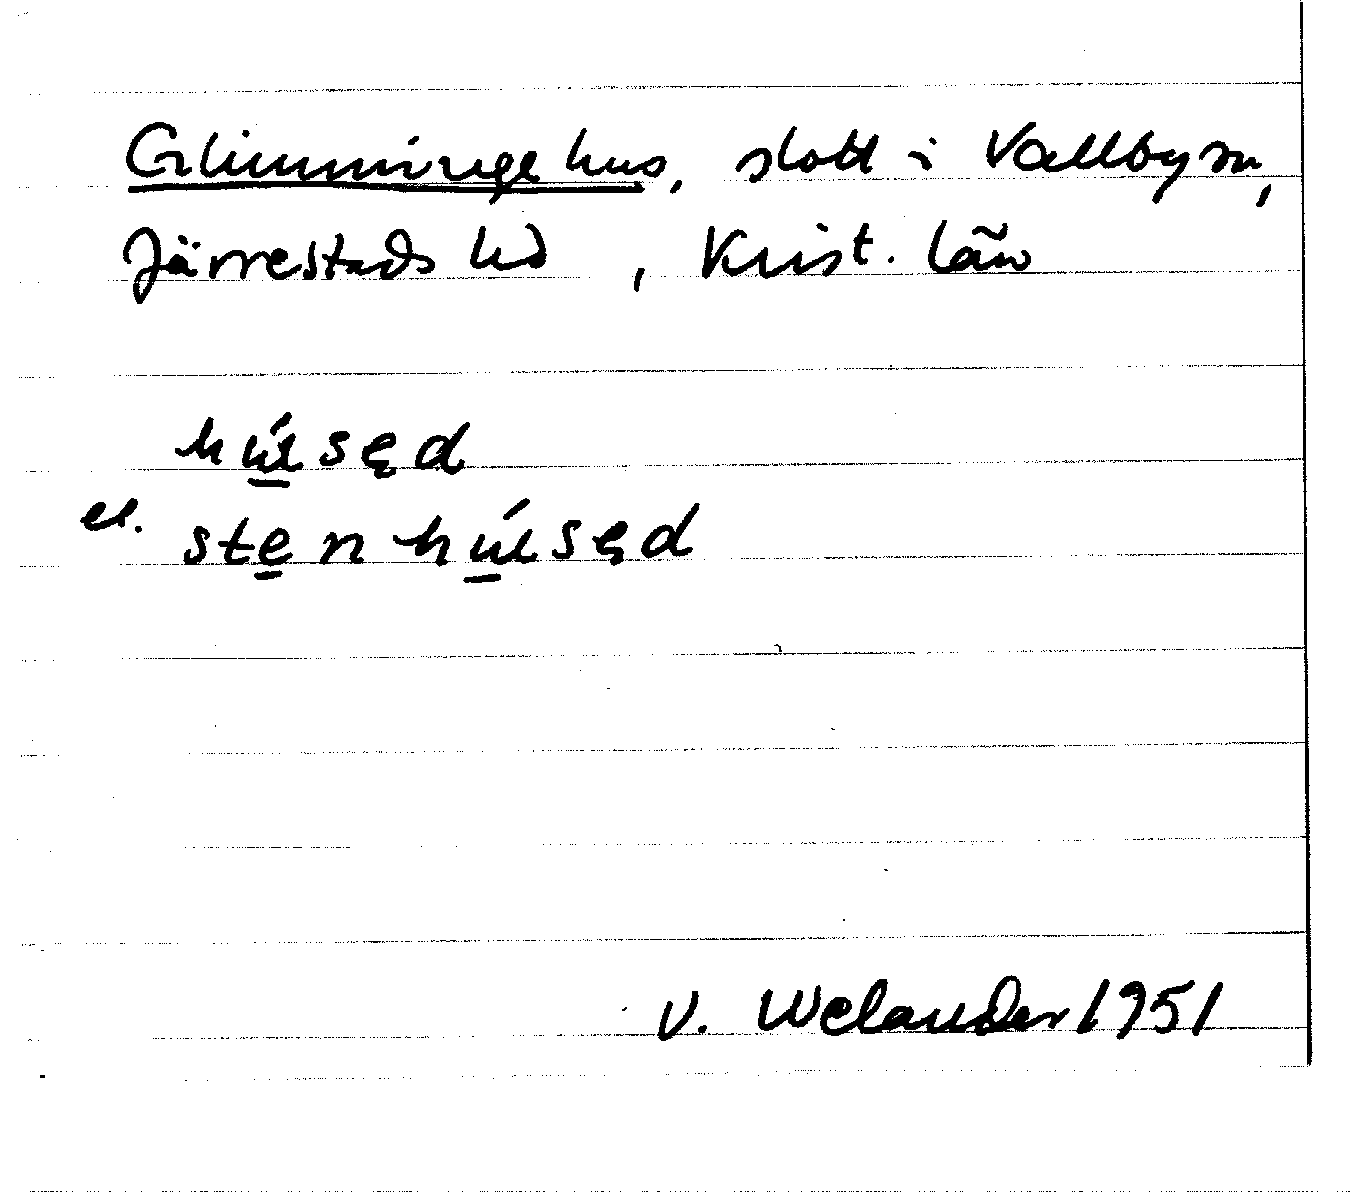 Glimmingehus, slott i Vallby sn,
Järrestads hd, Krist. län
hu̱ʹsęd
el. ste̱nhu̱ʹsęd
V. Welander 1951